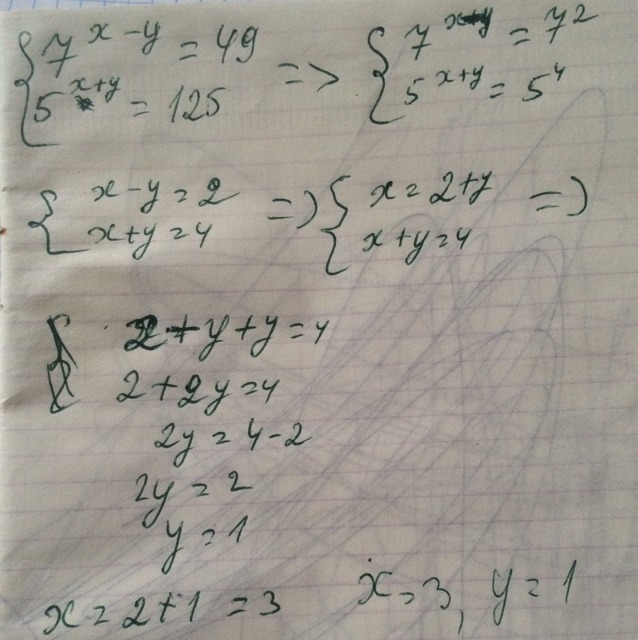 { 7^{x-y} = 49 => { 7^{x-y} = 7^2
5^{x+y} = 125 5^{x+y} = 5^4
{ x-y=2 => { x=2+y =>
x+y=4 x+y=4
2+y+y=4
2+2y=4
2y=4-2
2y=2
y=1
x=2+1=3 x=3, y=1